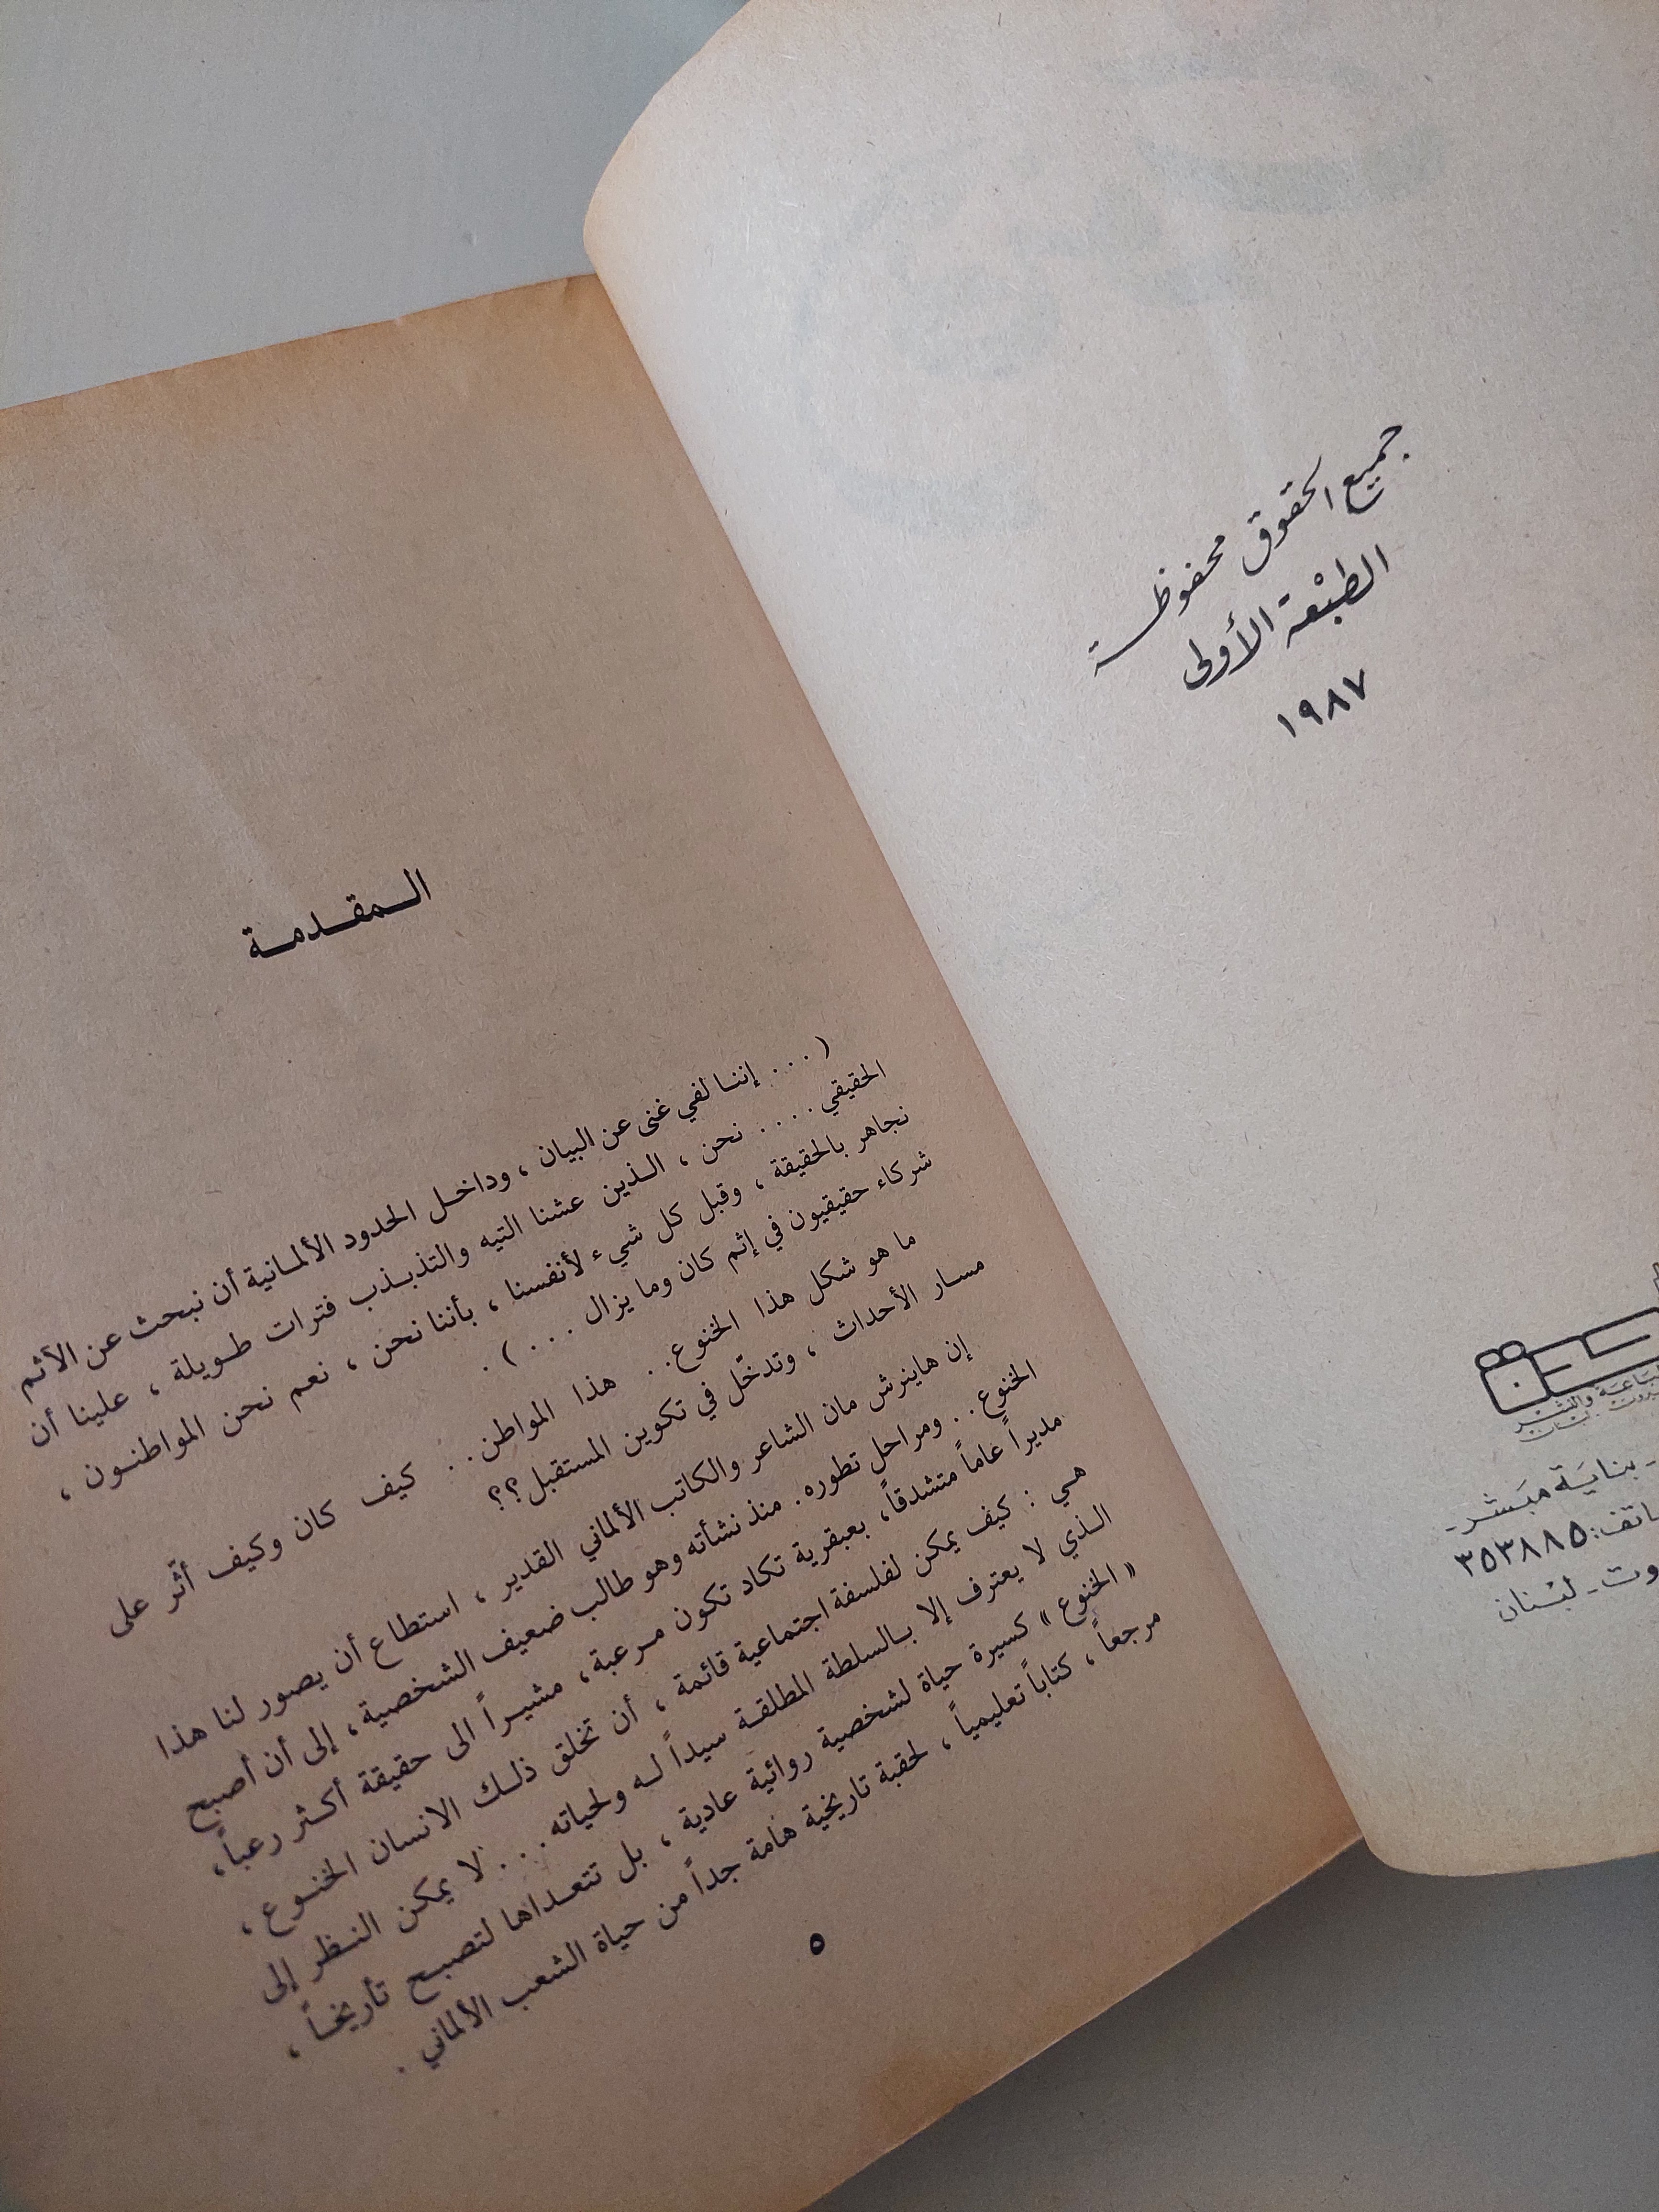 جميع الحقوق محفوظة
الطبْعة الأولى
١٩٨٧
بنايَة مبَشر -
٣٥٣٨٨٥
لبْنان
المقدمة
( . . . إننا لفي غنى عن البيان ، وداخل الحدود الألمانية أن نبحث عن الآثم
الحقيقي . . . . نحن ، الذين عشنا التيه والتذبذب فترات طويلة ، علينا أن
نجاهر بالحقيقة ، وقبل كل شيء لأنفسنا ، بأننا نحن ، نعم نحن المواطنون ،
شركاء حقيقيون في إثم كان وما يزال . . . ) .
ما هو شكل هذا الخنوع . . هذا المواطن . . كيف كان وكيف أثّر على
مسار الأحداث ، وتدخّل في تكوين المستقبل ؟؟
إن هاينرش مان الشاعر والكاتب الألماني القدير ، استطاع أن يصور لنا هذا
الخنوع . . ومراحل تطوره . منذ نشأته وهو طالب ضعيف الشخصية ، إلى أن أصبح
مديراً عاماً متشدقاً ، بعبقرية تكاد تكون مرعبة ، مشيراً الى حقيقة أكثر رعباً ،
هي : كيف يمكن لفلسفة اجتماعية قائمة ، أن تخلق ذلك الانسان الخنوع ،
الذي لا يعترف إلا بالسلطة المطلقة سيداً له ولحياته . . . لا يمكن النظر إلى
« الخنوع » كسيرة حياة لشخصية روائية عادية ، بل تتعداها لتصبح تأريخاً ،
مرجعاً ، كتاباً تعليمياً ، لحقبة تاريخية هامة جداً من حياة الشعب الألماني .
٥